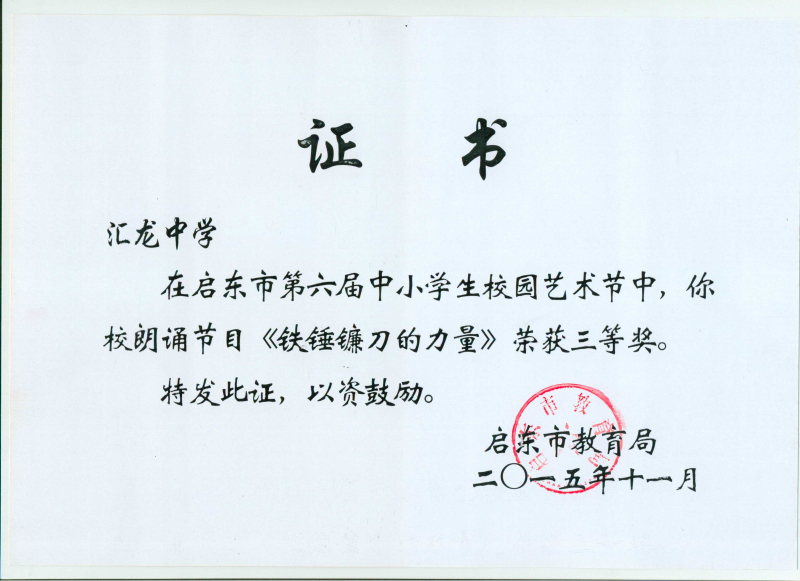 证书
汇龙中学
在启东市第六届中小学生校园艺术节中，你
校朗诵节目《铁锤镰刀的力量》荣获三等奖。
特发此证，以资鼓励。
启东市教育局
启东市教育局
二〇一五年十一月